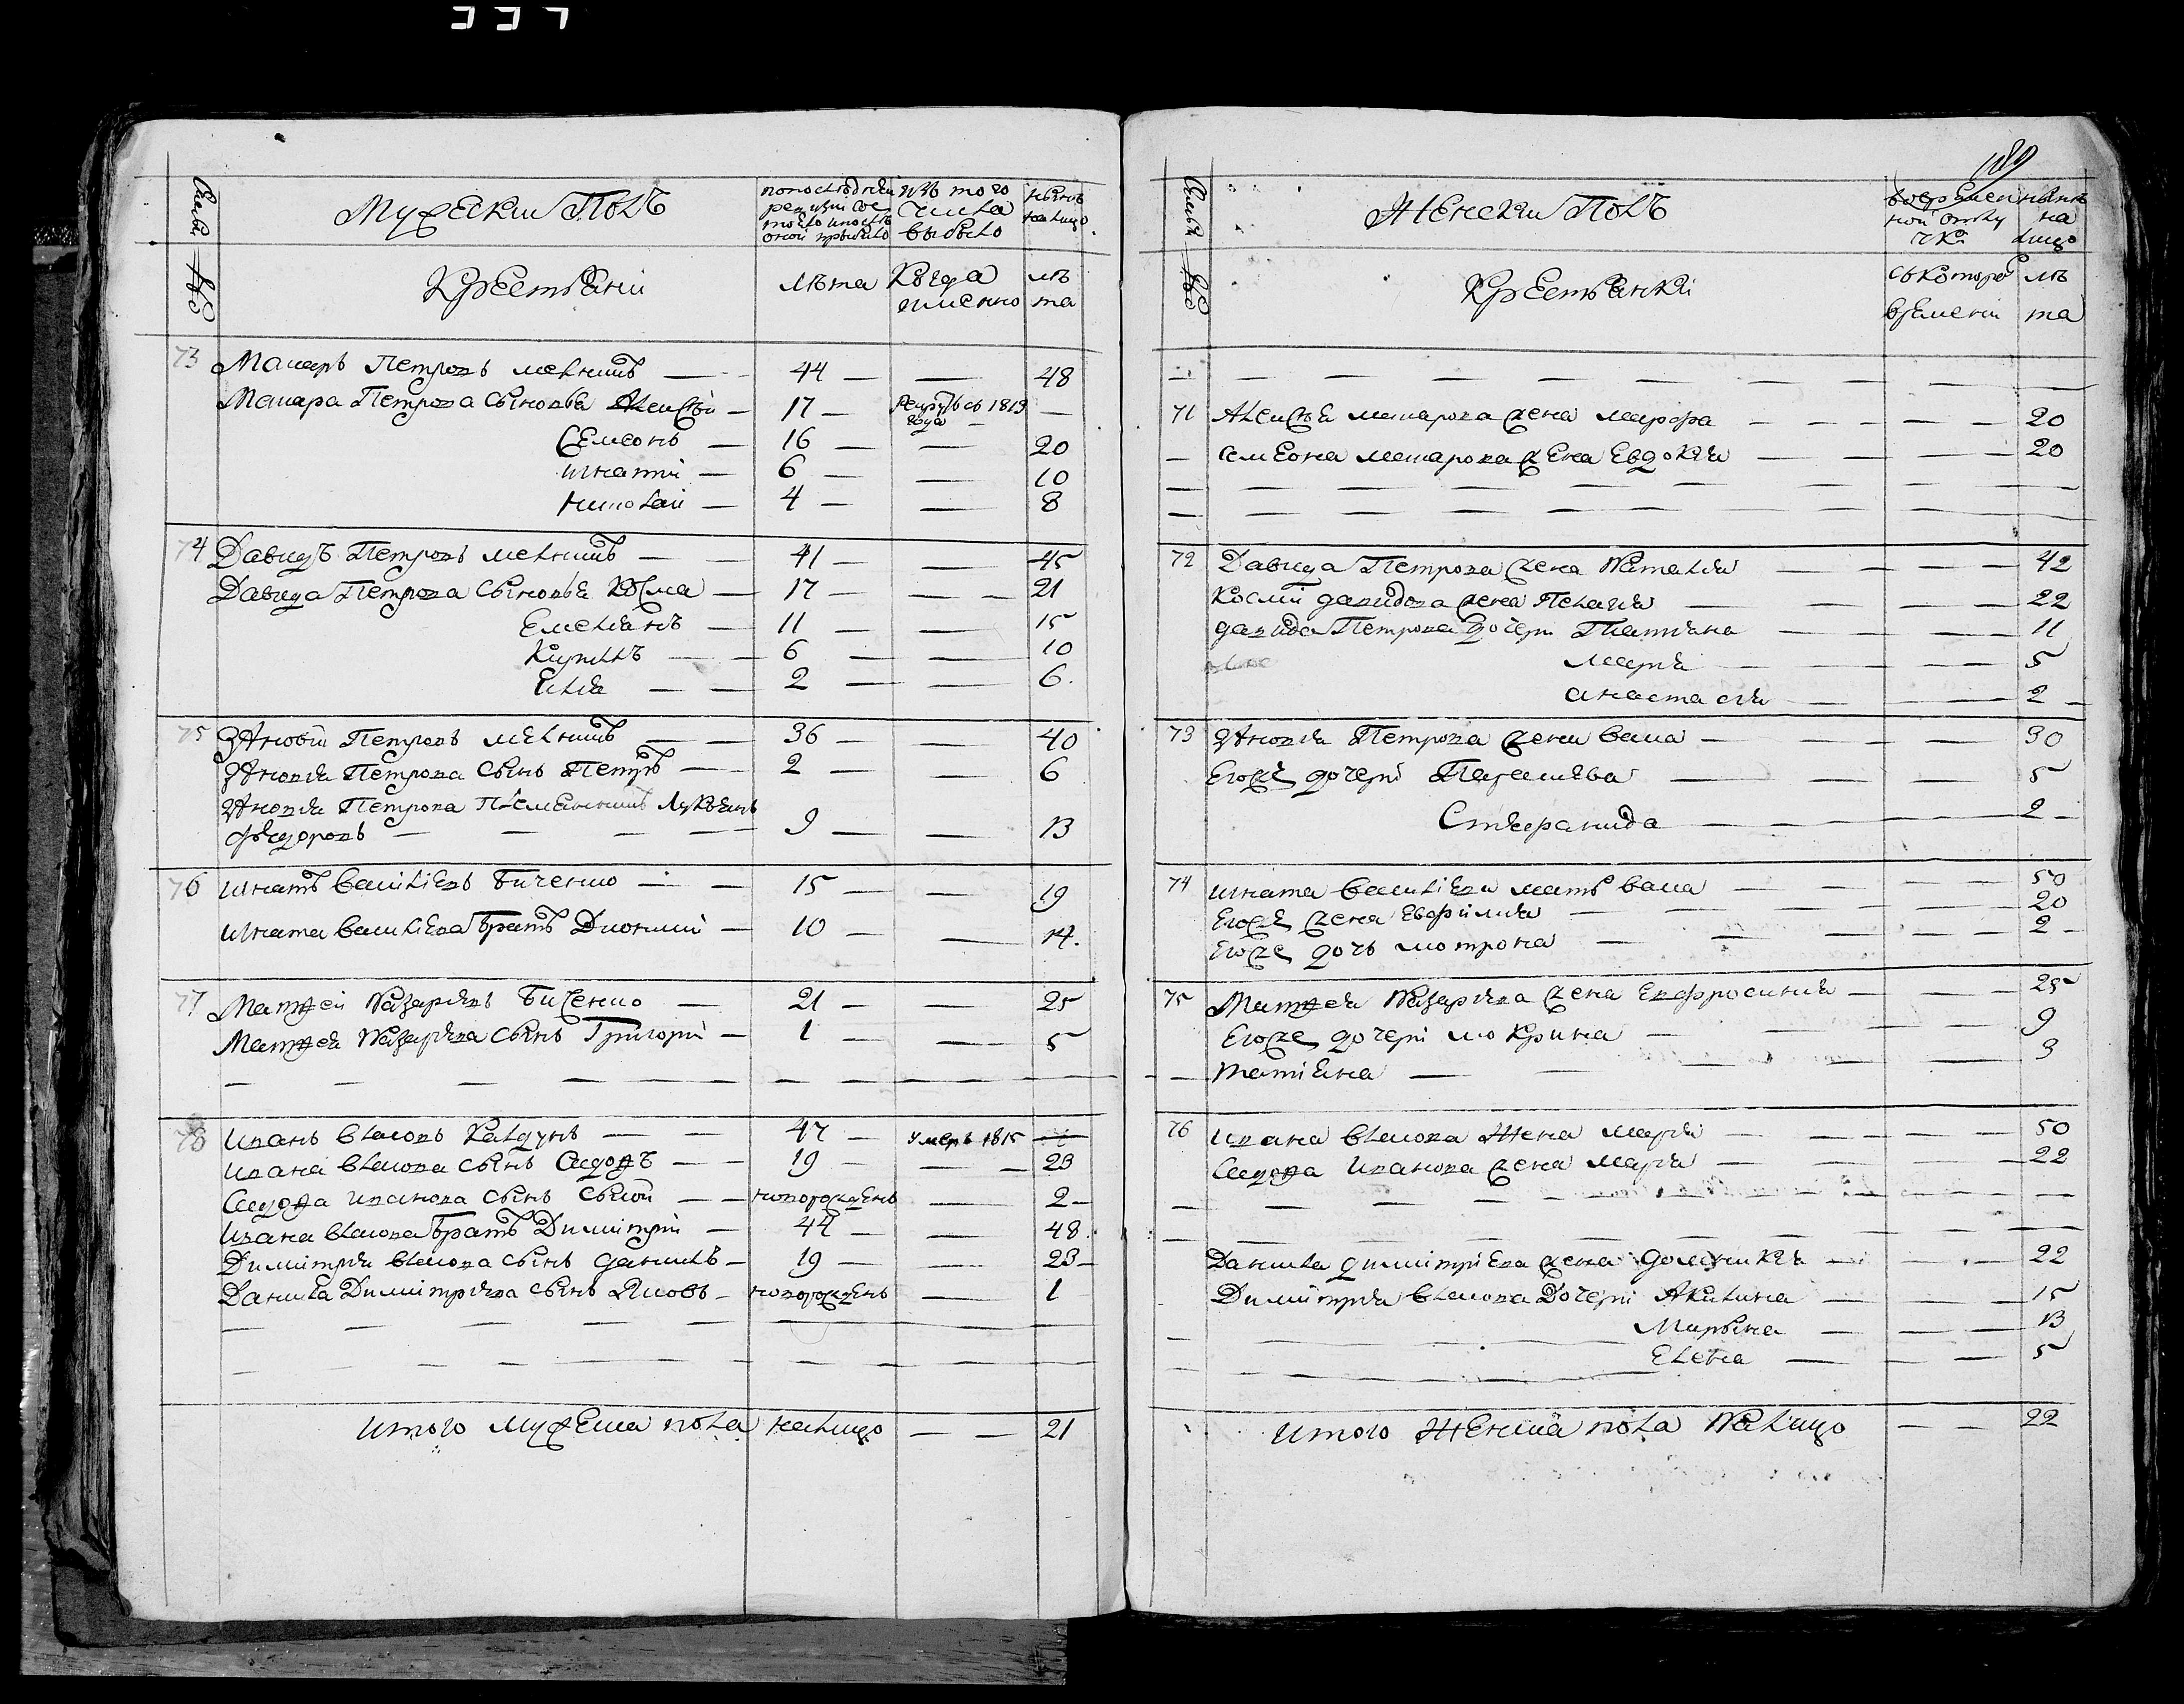 189
Мужескии Полъ
по последней ревизии состояло и после оной прибыло
изъ того числа выбыло
ныне на лицо
Крестьяни
лѣта
Когда именно
лѣта
73 Макаръ Петровъ мелникъ — 44 — — 48
Макара Петрова сыновья Алексѣй — 17 — рекрутъ съ 1813 года —
Семеонъ — 16 — — 20
Игнатий — 6 — — 10
Николай — 4 — — 8
74 Давидъ Петровъ мелникъ — 41 — — 45
Давида Петрова сыновья Косма — 17 — — — 21
Емелианъ — 11 — — 15
Кирилъ — 6 — — 10
Илия — — 2 — — 6.
75 Зѣновий Петровъ мелникъ — — 36 — — 40
Зѣновия Петрова сынъ Петръ — 2 — — 6
Зѣновия Петрова племянникъ Лукьянъ
Федоровъ — — — — 9 — — 13
76 Игнатъ Василіевъ Биченко — — 15 — — 19
Игната Василіева братъ Дионисий — 10 — — 14.
77 Матѳей Назариевъ Биченко — 21 — — 25
Матѳея Назариева сынъ Григорий — 1 — — 5
78 Иванъ Власовъ Калдунъ — — 47 — умеръ 1815 —
Ивана Власова сынъ Сидоръ — — 19 — — — 23
Ивана Власова братъ Димитрий — 44 — — 48.
Димитрия Власова сынъ Данилъ — 19 — — 23 —
Данила Димитриева сынъ Яковъ — новорожденъ — 1
итого мужеска пола налицо — — 21
Женский Полъ
во временной отлучке
ныне на лицо
Крестьянки
съ которого времени
лѣта
71 Алексѣя макарова жена марфа — — — — — 20
семеона макарова жена Евдокия — — — — 20
72 Давида Петрова жена Наталия — — — — 42
космы давидова жена Пелагия — — — — 22
давида Петрова дочери Татияна — — — — 11
мария — — — — 5
анастасия — — — 2 —
73 Зѣновия Петрова жена васа — — — — 30
Егоже дочери Параскева — — — — 5
Стефанида — — — — 2 —
74 игната василиева мать васа — — — — 50
Егоже жена Евфимия — — — — 20
Егоже дочь мотрона — — — — 2 —
75 Матѳея Назариева жена Евфросиния — — — 25
Егоже дочери мокрина — — — — 9
татіяна — — — — 3
76 ивана власова жена мария — — — — 50
Сидора иванова жена мария — — — — 22
Данила димитриева жена домникия — — — 22
Димитрия власова дочери Акилина — — — 15
Мариана — — — 13
Елена — — — 5
итого женска пола налицо — — 22